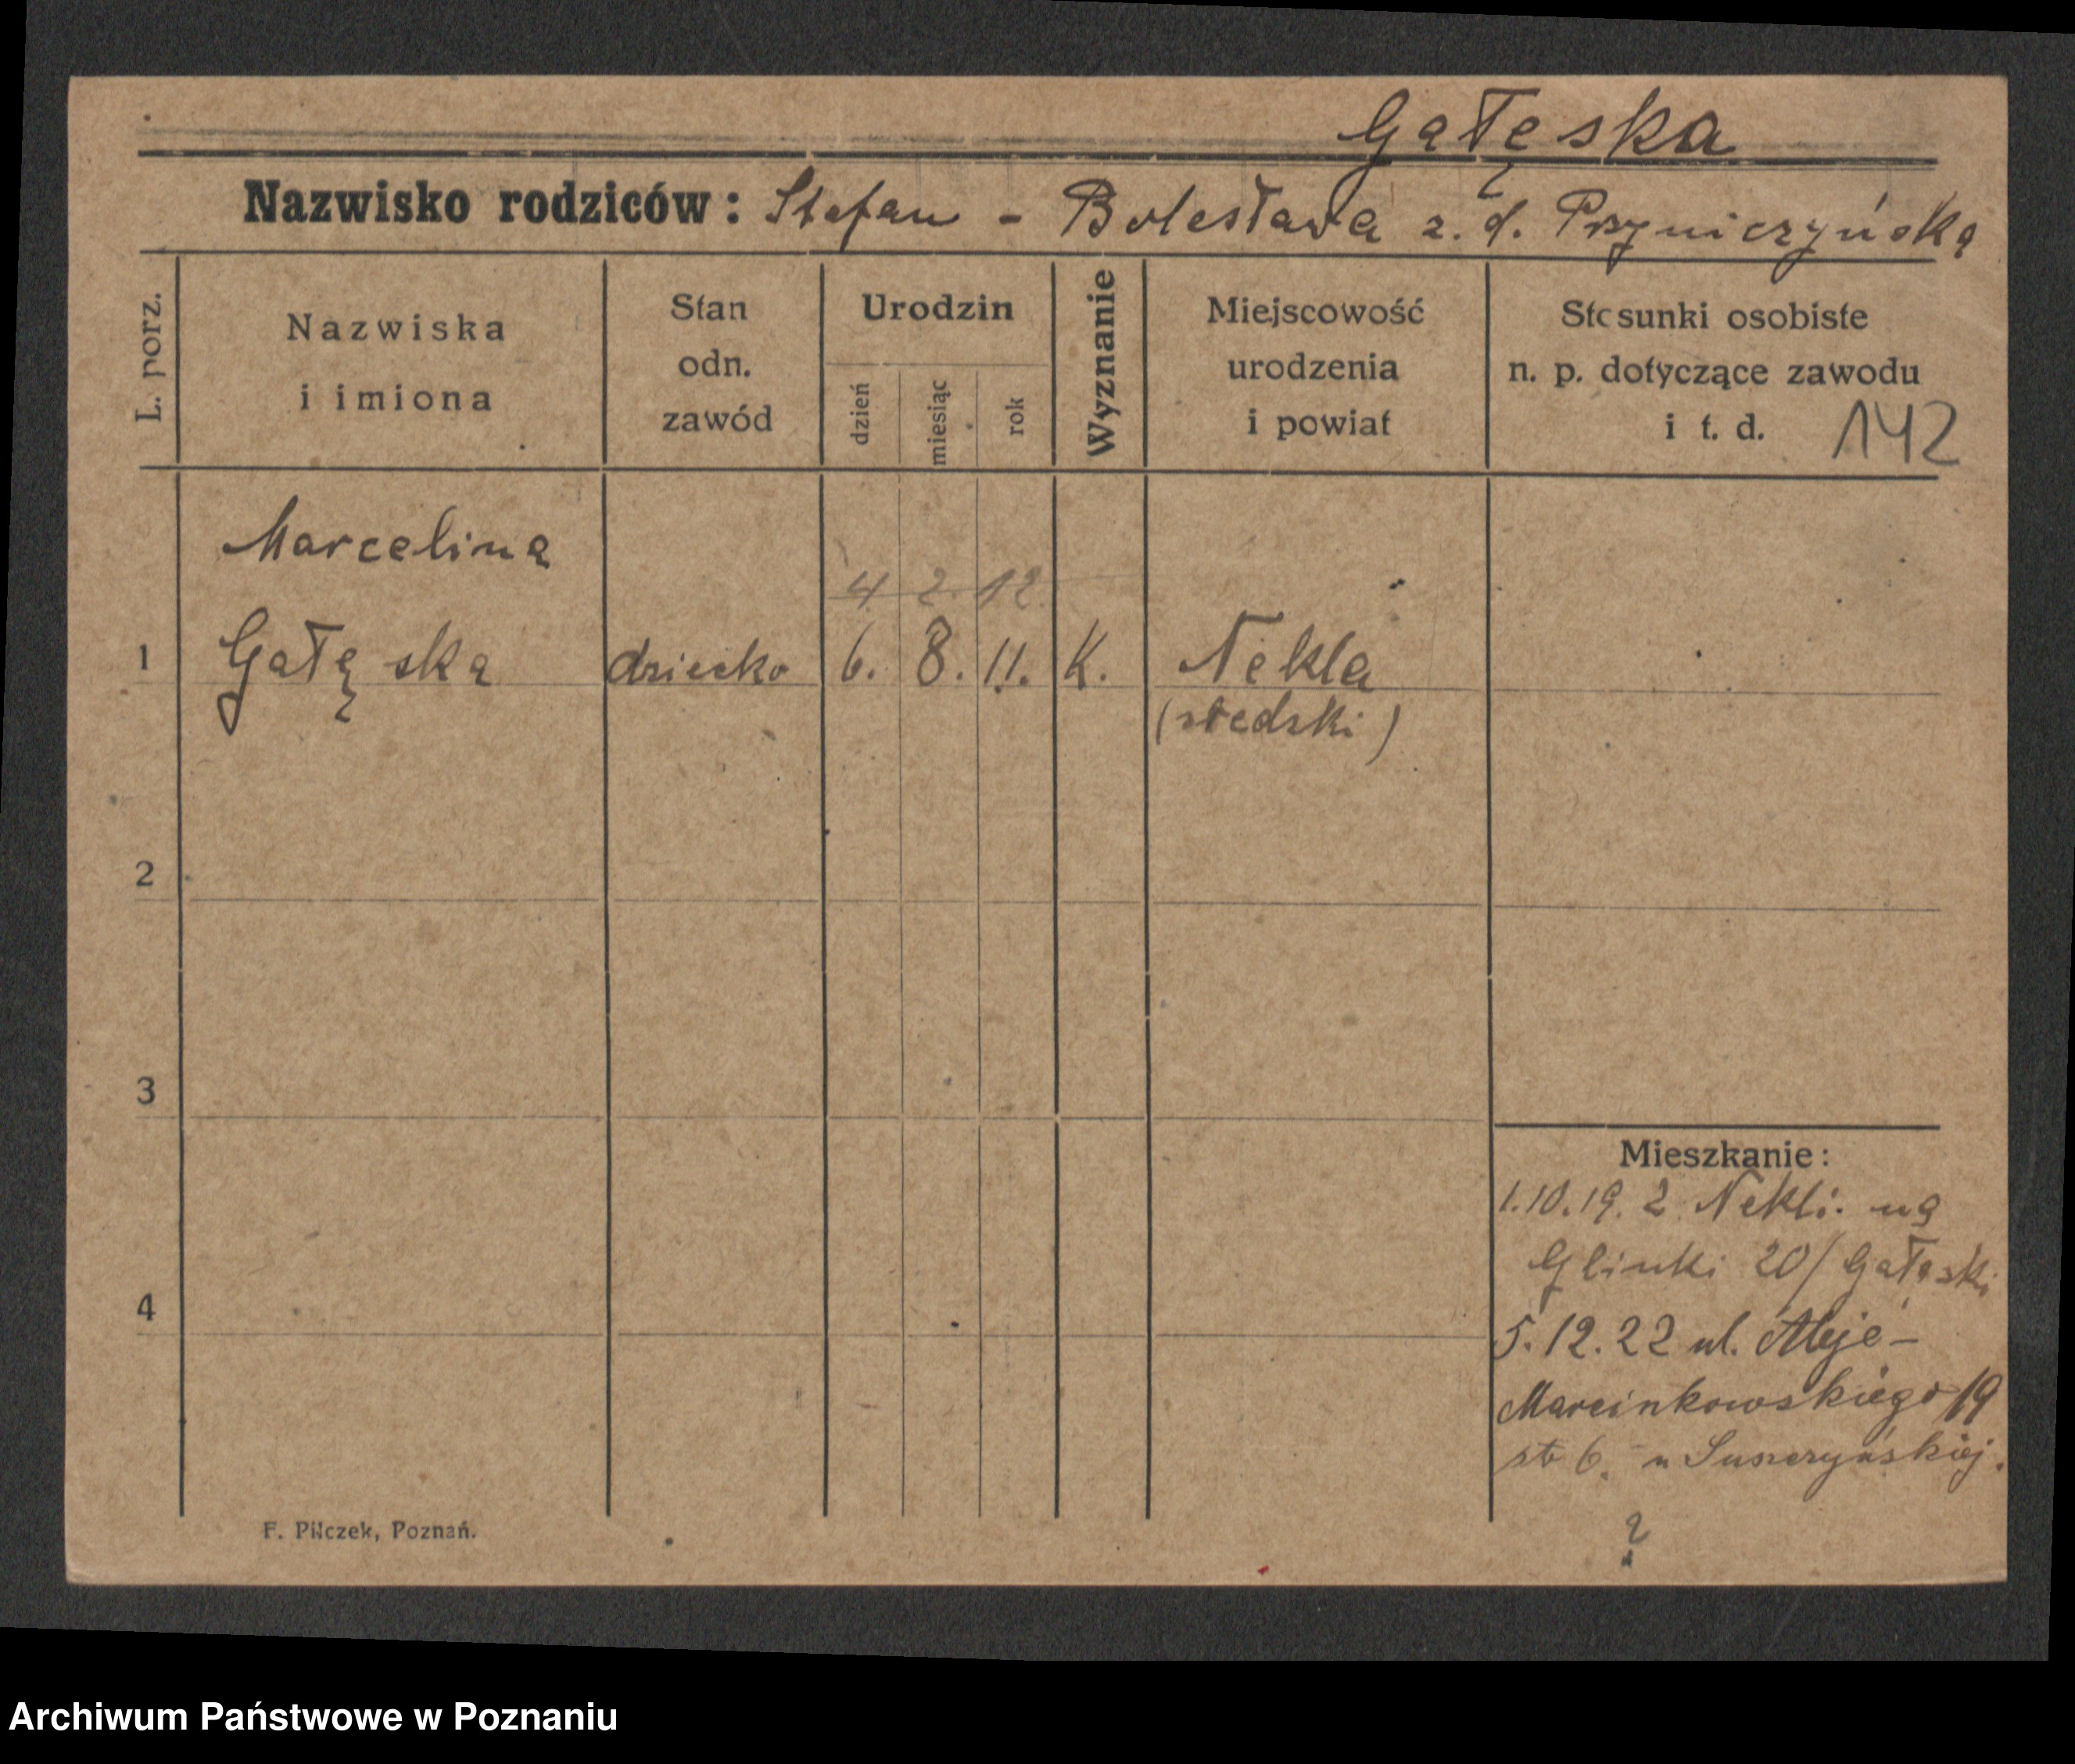 Gałęska
Nazwisko rodziców: Stefan - Bolesława z. d. Przyniczyńska
L. porz.
Nazwiska
i imiona
Stan
odn.
zawód
Urodzin
dzień
miesiąc
rok
Wyznanie
Miejscowość
urodzenia
i powiat
Stosunki osobiste
n. p. dotyczące zawodu
i t. d. 142
Marcelina
4 2. 12
1 Gałęska dziecko 6. 8. 11. K. Nekla
(średzki)
2
3
4
Mieszkanie:
1.10.19. z Nekli. na
Glinki 20/ Gałęski
5.12.22 ul. Aleje-
Marcinkowskiego 19
6. u Suszczyńskiej.
?
F. Pilczek, Poznań.
Archiwum Państwowe w Poznaniu